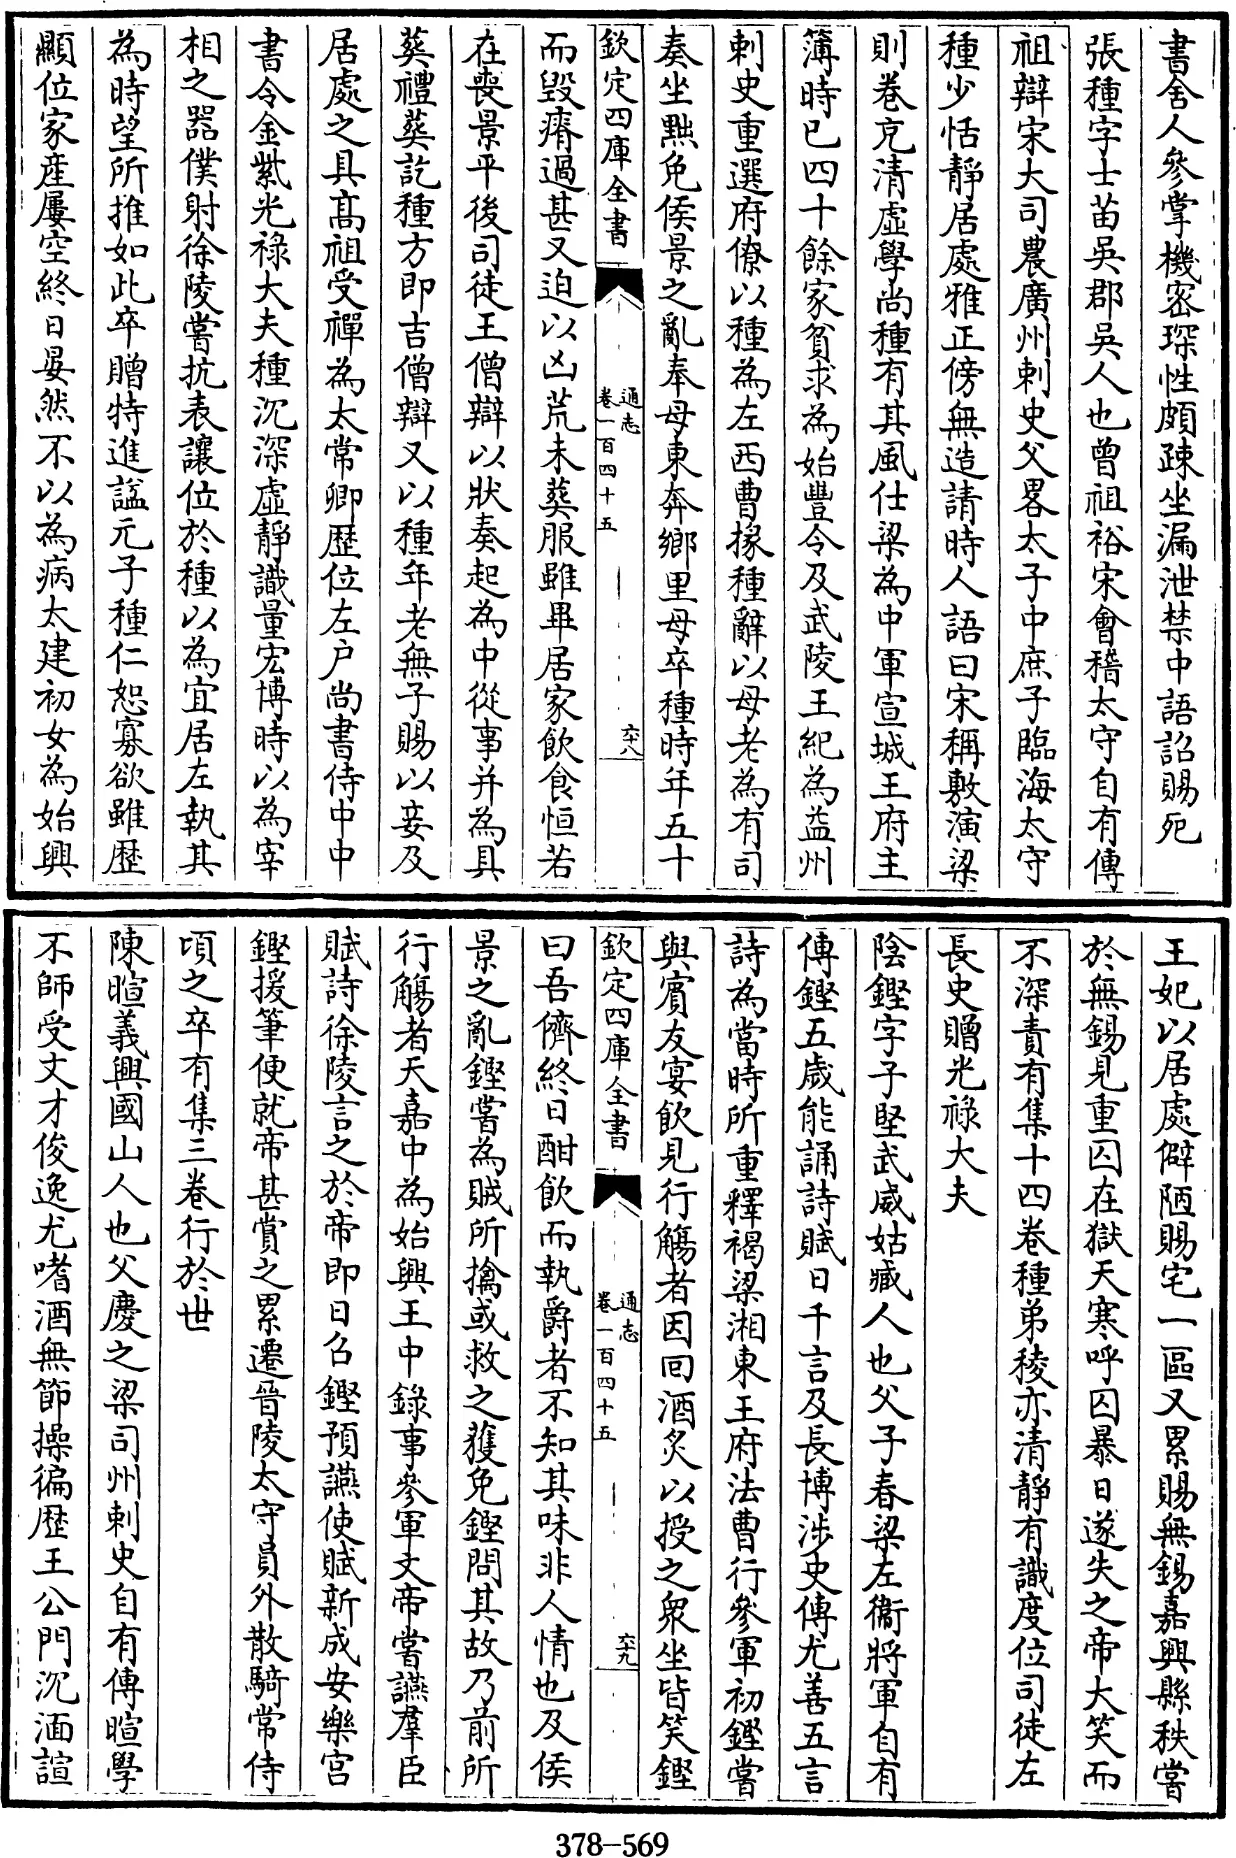 書舍人參掌機密琛性頗疎坐漏泄禁中語詔賜死
張種字士苗吳郡吳人也曾祖裕宋會稽太守自有傳
祖辯宋大司農廣州刺史父畧太子中庶子臨海太守
種少恬靜居處雅正傍無造請時人語曰宋稱敷演梁
則卷充清虛學尚種有其風仕梁為中軍宣城王府主
簿時已四十餘家貧求為始豐令及武陵王紀為益州
刺史重選府僚以種為左西曹掾種辭以母老為有司
奏坐黜免侯景之亂奉母東奔鄉里母卒種時年五十
欽定四庫全書
通志
卷一百四十五
六十八
而毀瘠過甚又迫以凶荒未葬服雖畢居家飲食恒若
在喪景平後司徒王僧辯以狀奏起為中從事并為具
葬禮葬訖種方即吉僧辯又以種年老無子賜以妾及
居處之具髙祖受禪為太常卿歷位左户尚書侍中中
書令金紫光祿大夫種沉深虛靜識量宏博時以為宰
相之器僕射徐陵嘗抗表讓位於種以為宜居左執其
為時望所推如此卒贈特進諡元子種仁恕寡欲雖歷
顯位家産屢空終日晏然不以為病太建初女為始興
王妃以居處僻陋賜宅一區又累賜無錫嘉興縣秩嘗
於無錫見重囚在獄天寒呼囚暴日遂失之帝大笑而
不深責有集十四卷種弟稜亦清靜有識度位司徒左
長史贈光祿大夫
陰鏗字子堅武威姑臧人也父子春梁左衞將軍自有
傳鏗五歲能誦詩賦日千言及長博涉史傳尤善五言
詩為當時所重釋褐梁湘東王府法曹行參軍初鏗嘗
與賓友宴飲見行觴者因回酒炙以授之衆坐皆笑鏗
欽定四庫全書
通志
卷一百四十五
六十九
曰吾儕終日酣飲而執爵者不知其味非人情也及侯
景之亂鏗嘗為賊所擒或救之獲免鏗問其故乃前所
行觴者天嘉中為始興王中錄事參軍文帝嘗讌羣臣
賦詩徐陵言之於帝即日召鏗預讌使賦新成安樂宫
鏗援筆便就帝甚賞之累遷晉陵太守員外散騎常侍
頃之卒有集三卷行於世
陳暄義興國山人也父慶之梁司州刺史自有傳暄學
不師受文才俊逸尤嗜酒無節操徧歷王公門沉湎諠
378-569